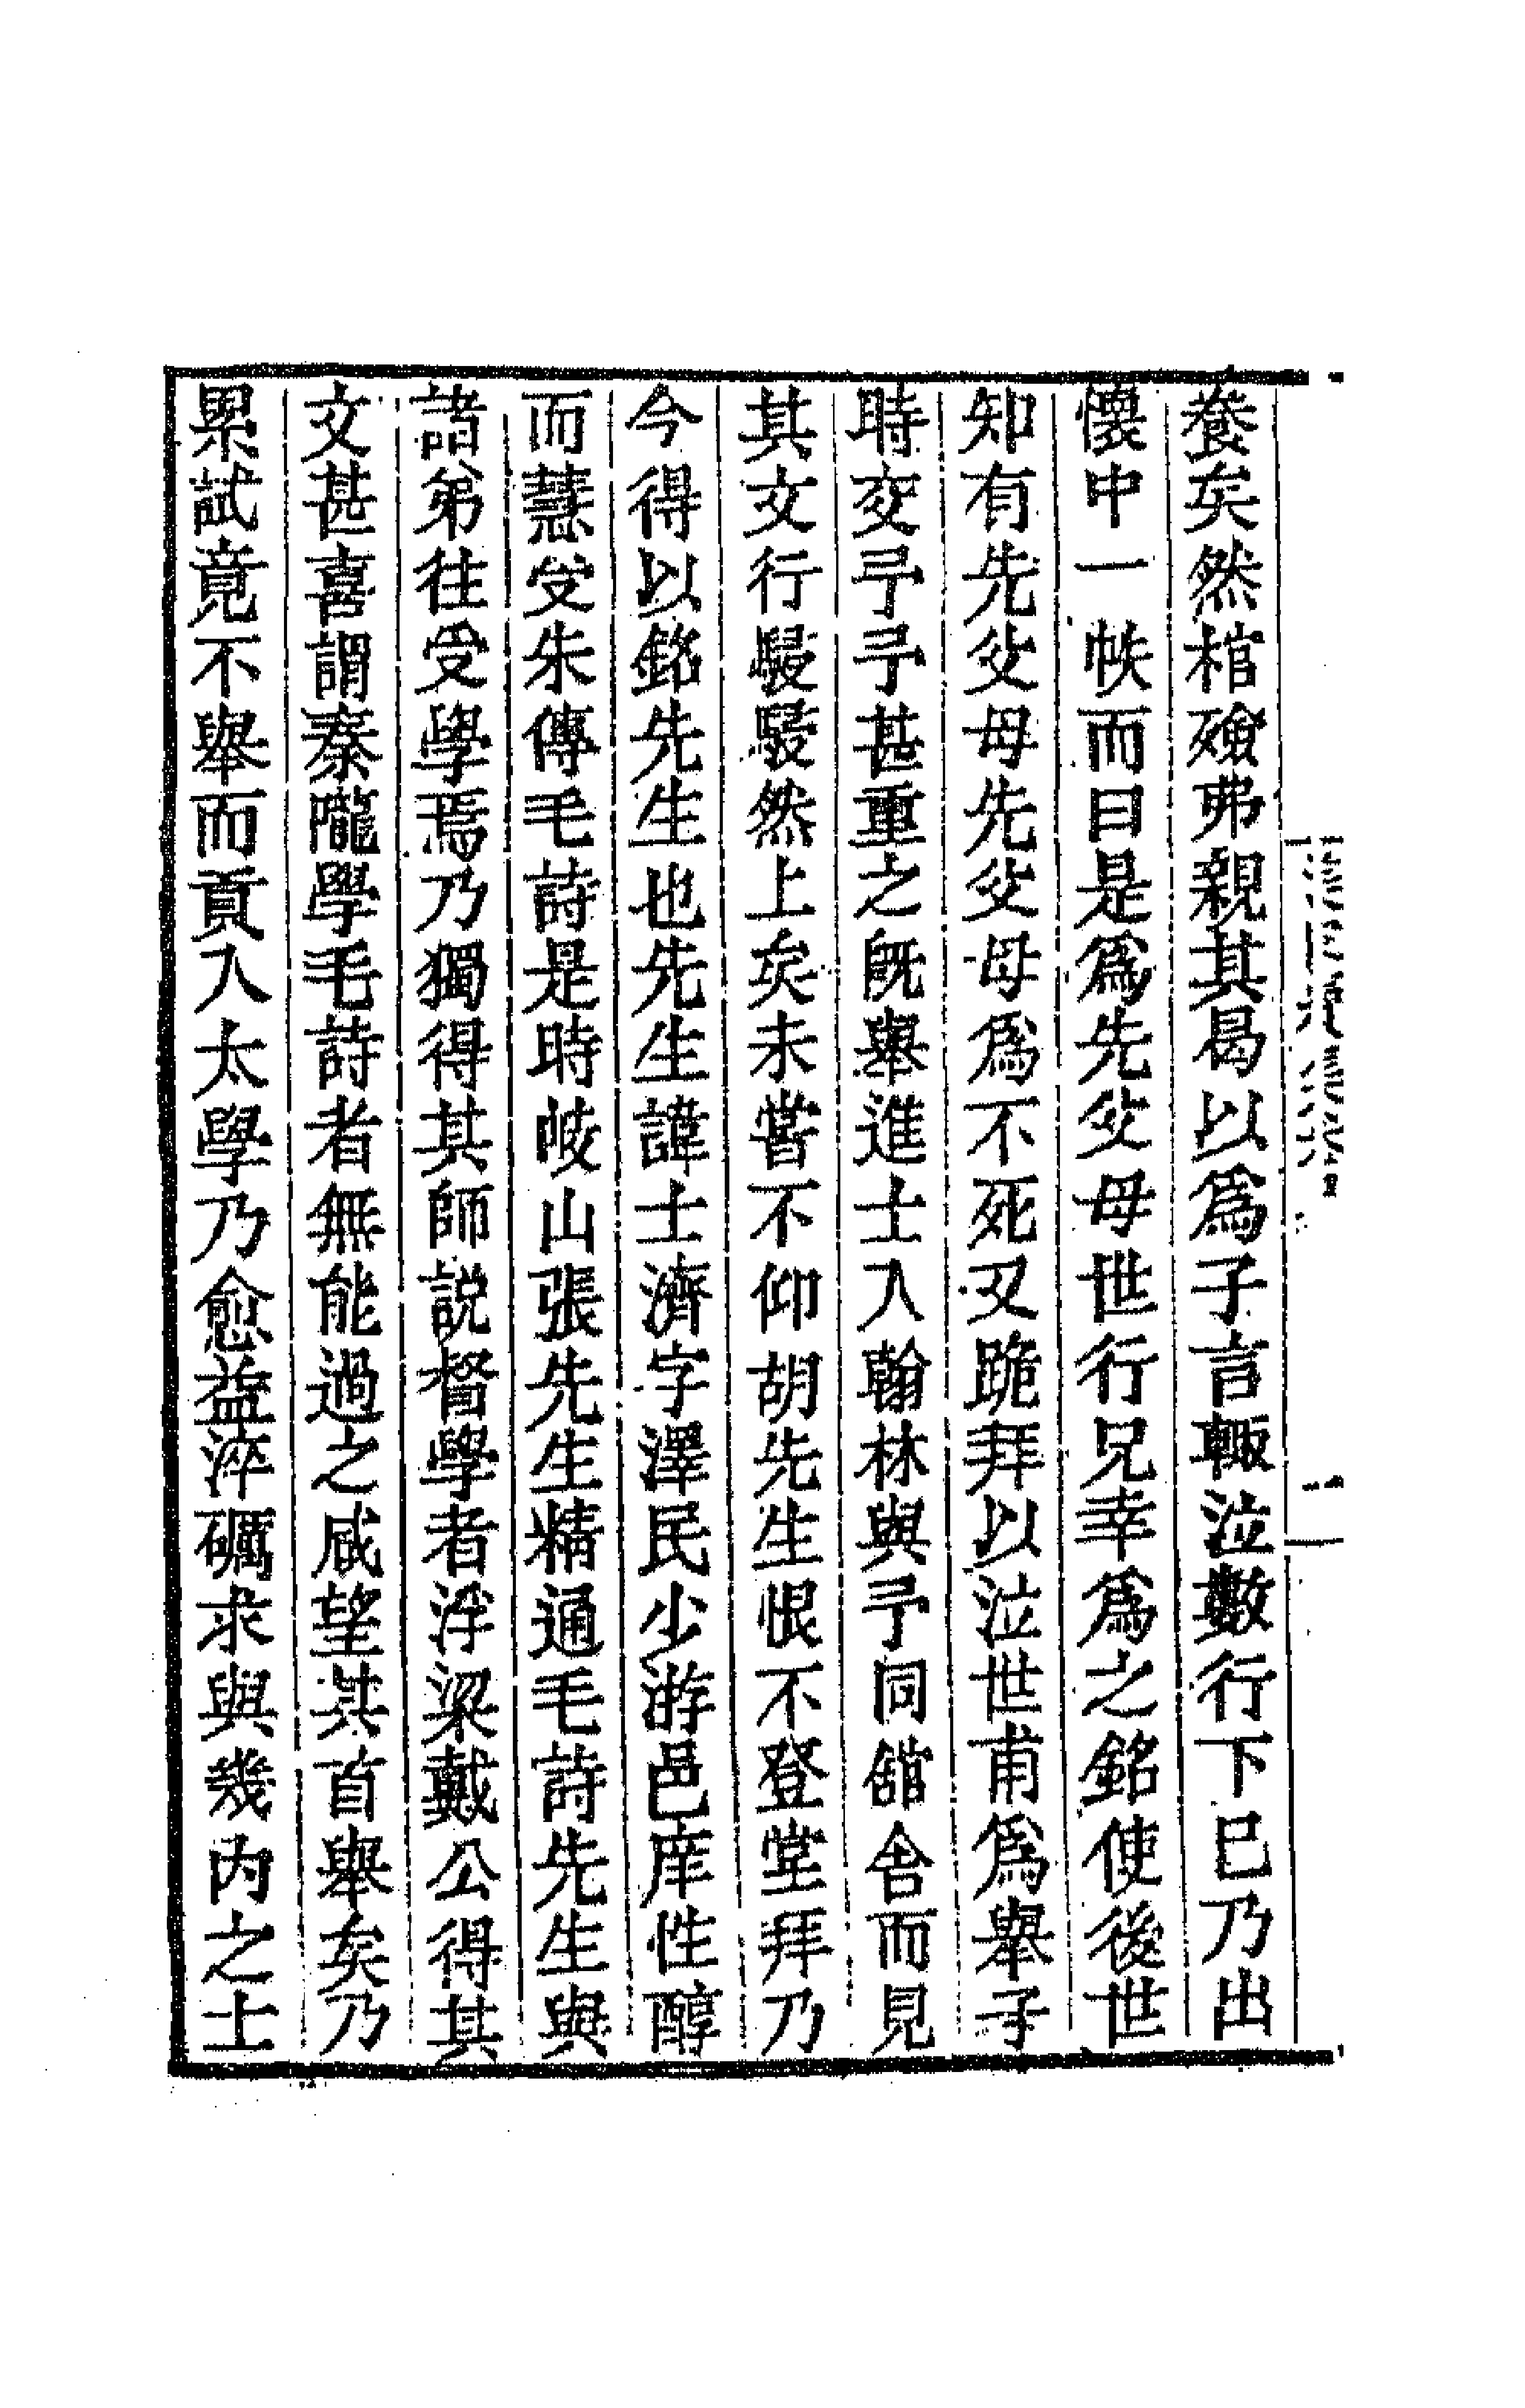 養矣然棺殮弗親其曷以爲子言輙泣數行下已乃出
懷中一帙而曰是爲先父母世行兄幸爲之銘使後世
知有先父母先父母爲不死又跪拜以泣世甫爲舉子
時交予予甚重之旣舉進士入翰林與予同舘舍而見
其文行駸駸然上矣未嘗不仰胡先生恨不登堂拜乃
今得以銘先生也先生諱士濟字澤民少游邑庠性醇
而慧受朱傳毛詩是時岐山張先生精通毛詩先生與
諸弟往受學焉乃獨得其師説督學者浮梁戴公得其
文甚喜謂秦隴學毛詩者無能過之咸望其首舉矣乃
累試竟不舉而貢入太學乃愈益淬礪求與幾內之士